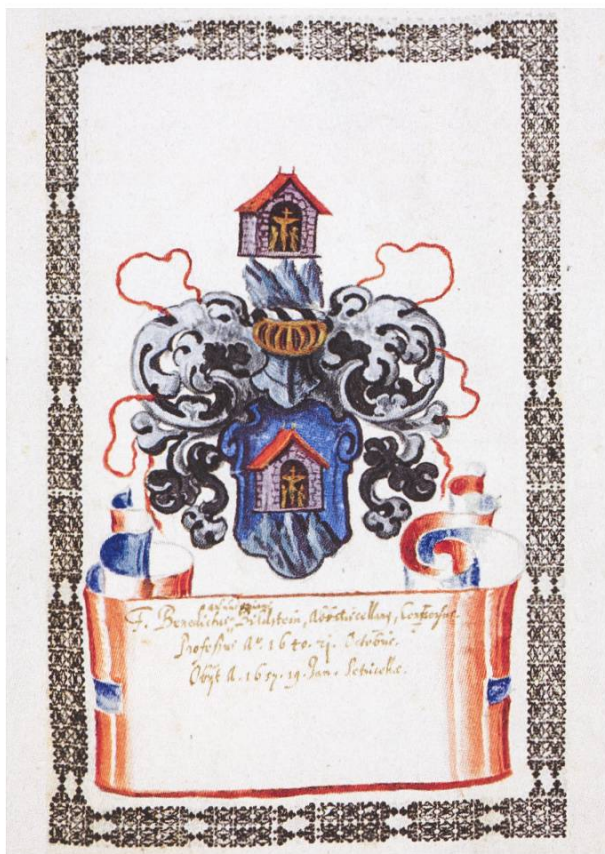 F. Benedictus Bildstein, Abbatiscellanus, Conversus
Professus Aº. 1640. 21. Octobris.
Obijt A. 1657. 19. Jan.